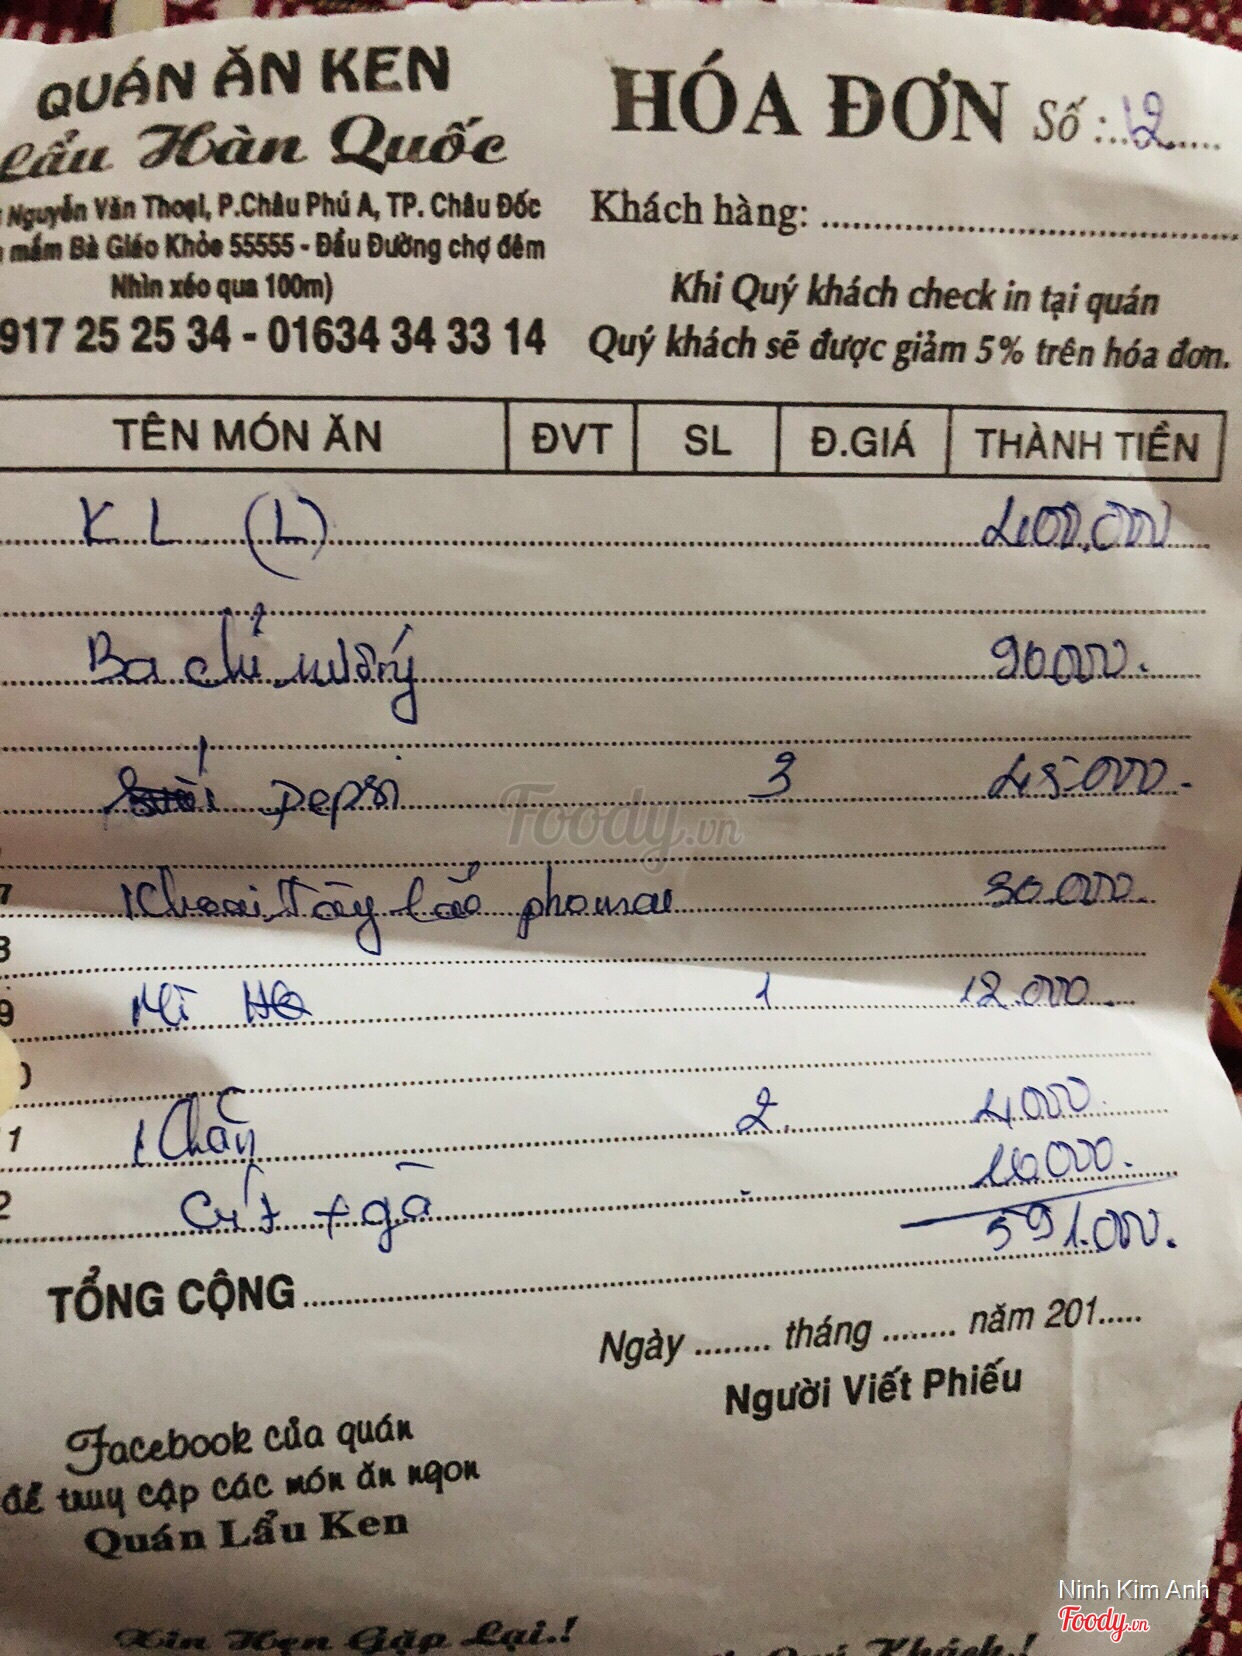 QUÁN ĂN KEN
Lẩu Hàn Quốc
Nguyễn Văn Thoại, P.Châu Phú A, TP. Châu Đốc
mắm Bà Giáo Khỏe 55555 - Đầu Đường chợ đêm
Nhìn xéo qua 100m)
917 25 25 34 - 01634 34 33 14
HÓA ĐƠN Số: 12
Khách hàng:
Khi Quý khách check in tại quán
Quý khách sẽ được giảm 5% trên hóa đơn.
TÊN MÓN ĂN ĐVT SL Đ.GIÁ THÀNH TIỀN
K L (L) 400.000
Ba chỉ nướng 90000.
pepsi 3 45000.
Foody.vn
7 Khoai tây lắc phomai 30.000.
8
9 Mì 1 12.000.
0
1 Khăn 2. 4000.
2 + gà 10000.
591.000.
TỔNG CỘNG
Ngày ........ tháng ........ năm 201.....
Người Viết Phiếu
Facebook của quán
để truy cập các món ăn ngon
Quán Lẩu Ken
Xin Hẹn Gặp Lại.!
Quý Khách.!
Ninh Kim Anh
Foody.vn